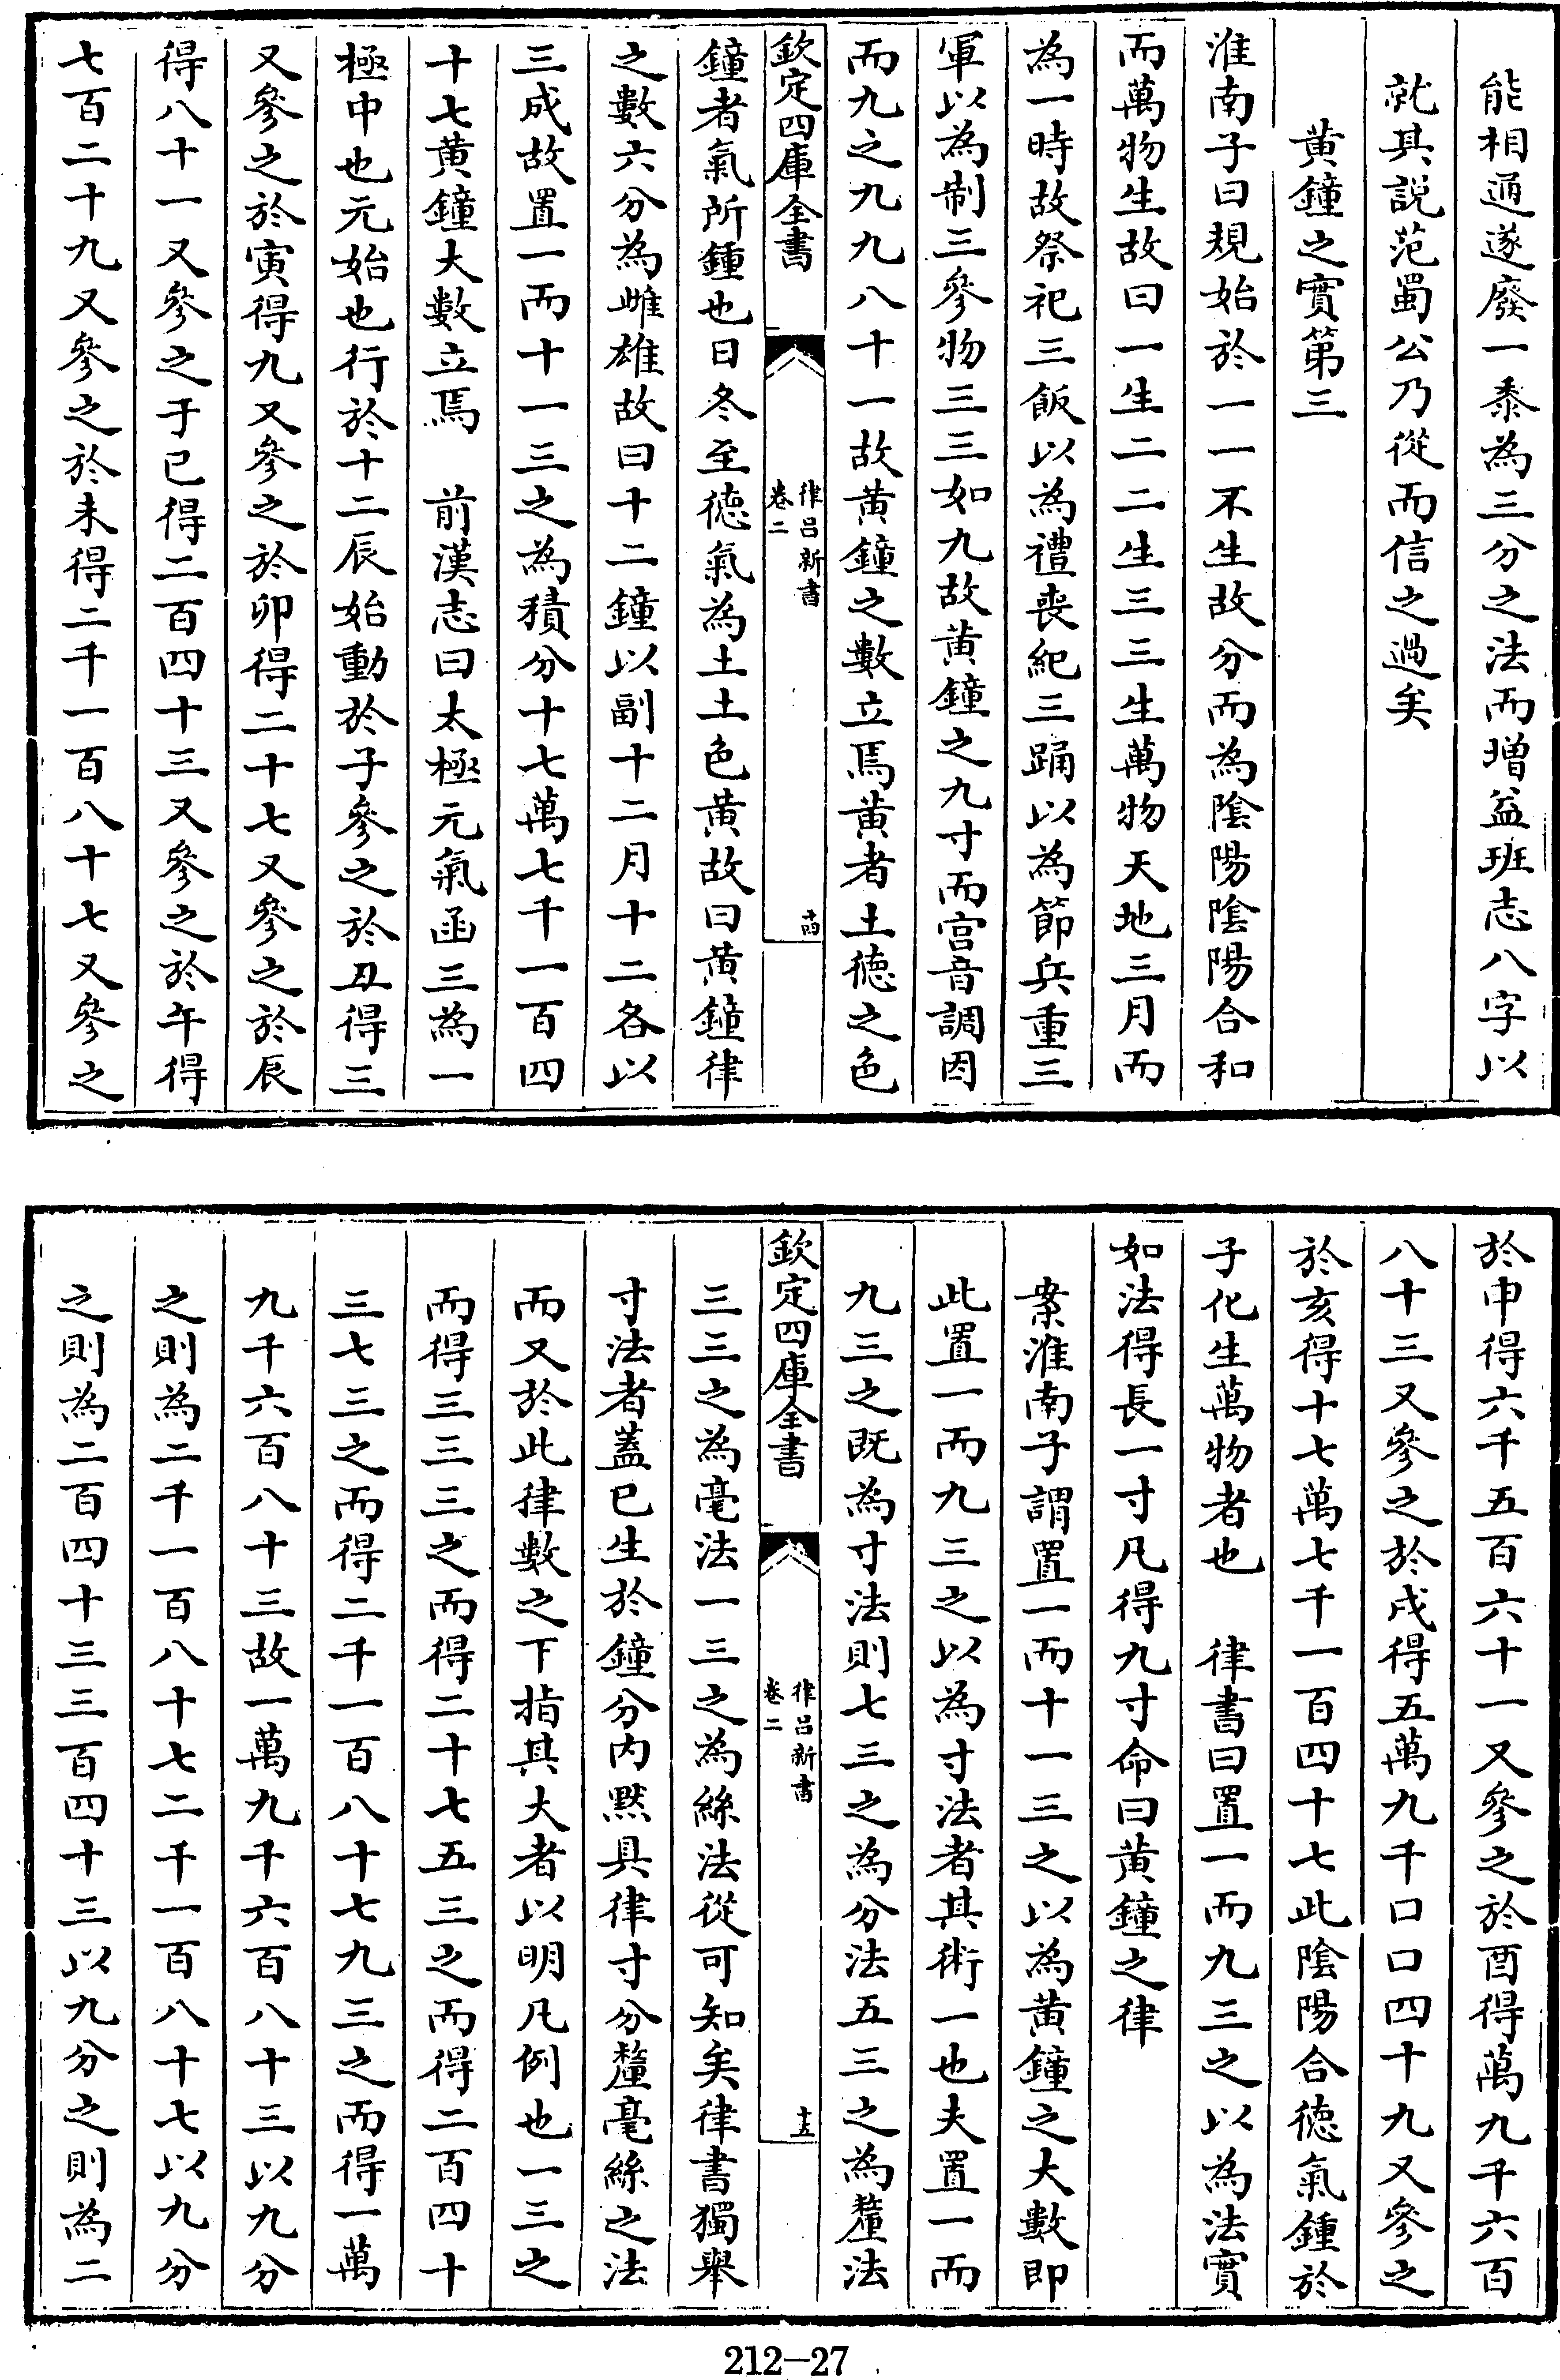 能相通遂廢一黍為三分之法而増益班志八字以
就其説范蜀公乃從而信之過矣
黄鐘之實第三
淮南子曰規始於一一不生故分而為陰陽陰陽合和
而萬物生故曰一生二二生三三生萬物天地三月而
為一時故祭祀三飯以為禮喪紀三踊以為節兵重三
軍以為制三參物三三如九故黄鐘之九寸而宫音調因
而九之九九八十一故黄鐘之數立焉黄者土徳之色
欽定四庫全書
律吕新書
卷二
十四
鐘者氣所鍾也日冬至徳氣為土土色黄故曰黄鐘律
之數六分為雌雄故曰十二鐘以副十二月十二各以
三成故置一而十一三之為積分十七萬七千一百四
十七黄鐘大數立焉　前漢志曰太極元氣函三為一
極中也元始也行於十二辰始動於子參之於丑得三
又參之於寅得九又參之於卯得二十七又參之於辰
得八十一又參之于巳得二百四十三又參之於午得
七百二十九又參之於未得二千一百八十七又參之
於申得六千五百六十一又參之於酉得萬九千六百
八十三又參之於戌得五萬九千口口四十九又參之
於亥得十七萬七千一百四十七此陰陽合徳氣鍾於
子化生萬物者也　律書曰置一而九三之以為法實
如法得長一寸凡得九寸命曰黄鐘之律
案淮南子謂置一而十一三之以為黄鐘之大數即
此置一而九三之以為寸法者其術一也夫置一而
九三之既為寸法則七三之為分法五三之為釐法
欽定四庫全書
律吕新書
卷二
十五
三三之為毫法一三之為絲法從可知矣律書獨舉
寸法者蓋已生於鐘分内黙具律寸分釐毫絲之法
而又於此律數之下指其大者以明凡例也一三之
而得三三三之而得二十七五三之而得二百四十
三七三之而得二千一百八十七九三之而得一萬
九千六百八十三故一萬九千六百八十三以九分
之則為二千一百八十七二千一百八十七以九分
之則為二百四十三二百四十三以九分之則為二
212-27